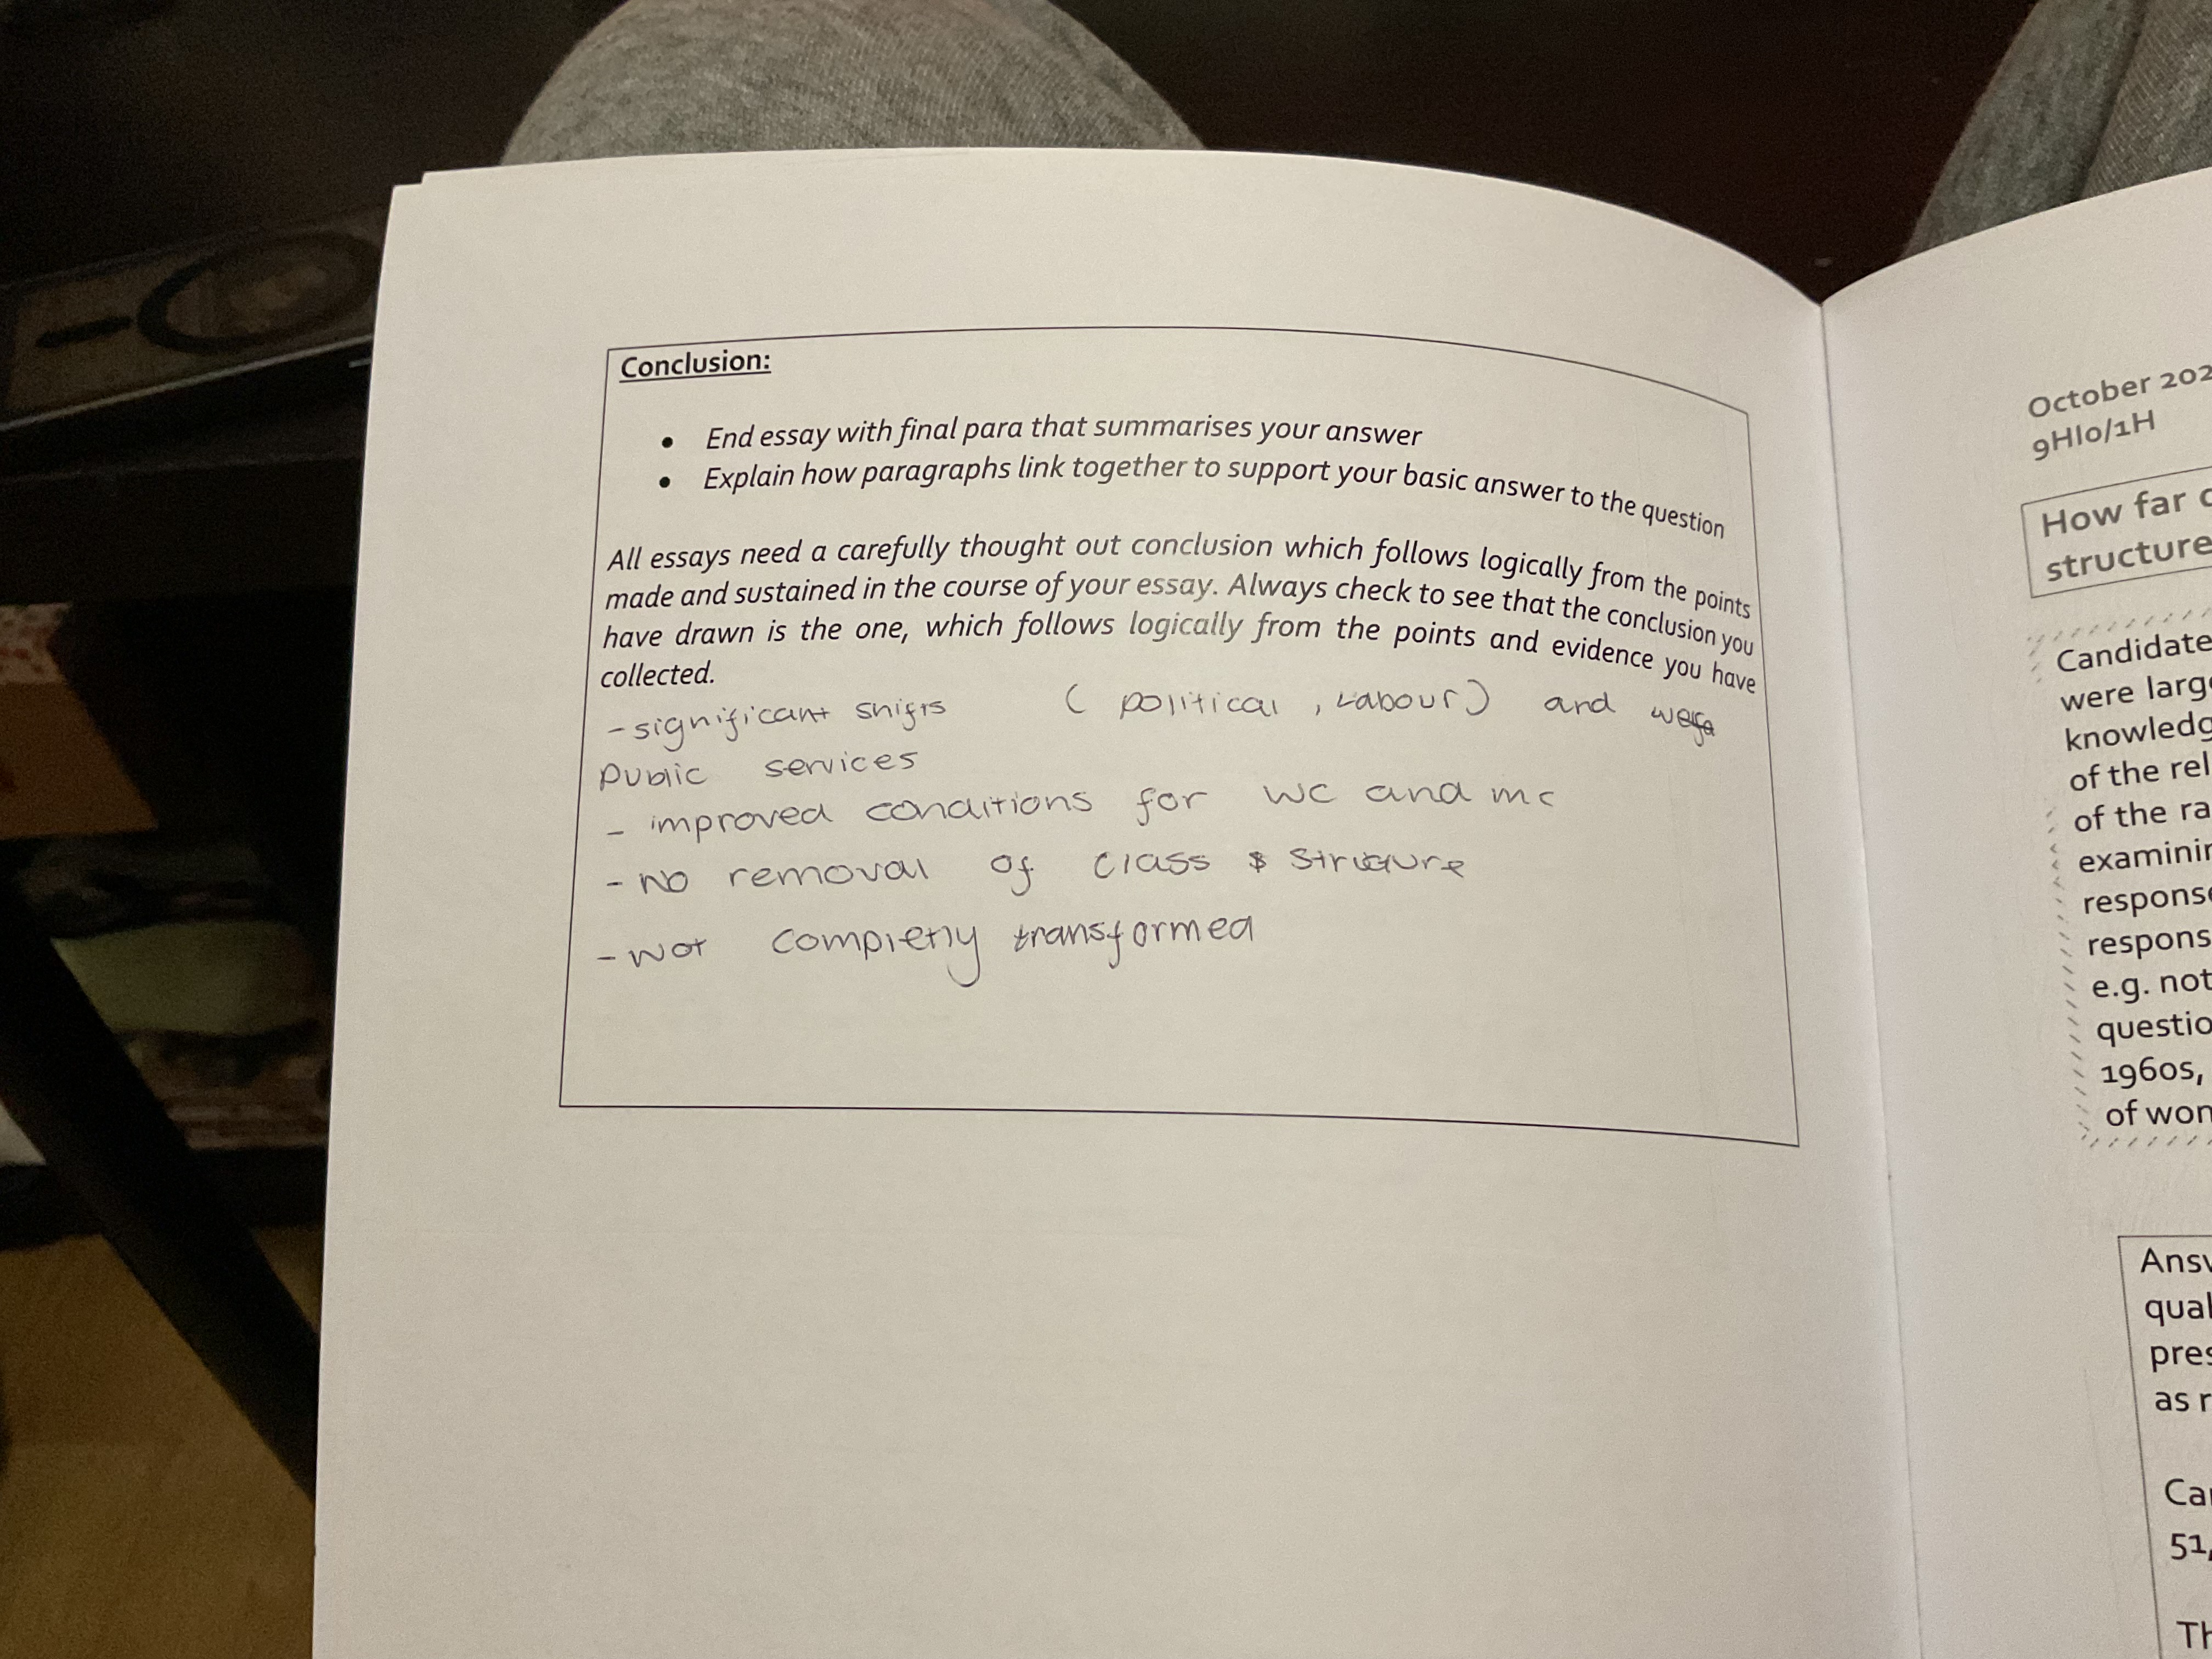 Conclusion:
• End essay with final para that summarises your answer
• Explain how paragraphs link together to support your basic answer to the question
All essays need a carefully thought out conclusion which follows logically from the points
made and sustained in the course of your essay. Always check to see that the conclusion you
have drawn is the one, which follows logically from the points and evidence you have
collected.
- significant shifts ( political , Labour) and
Public services
- improved conditions for WC and mc
- No removal of class structure
- Not completly transformed
October 202
9HI0/1H
How far
structure
Candidate
were larg
knowledg
of the rel
of the ra
examinin
respons
respons
e.g. not
questio
1960s,
of wom
Answ
qual
pres
as r
Ca
51,
Th